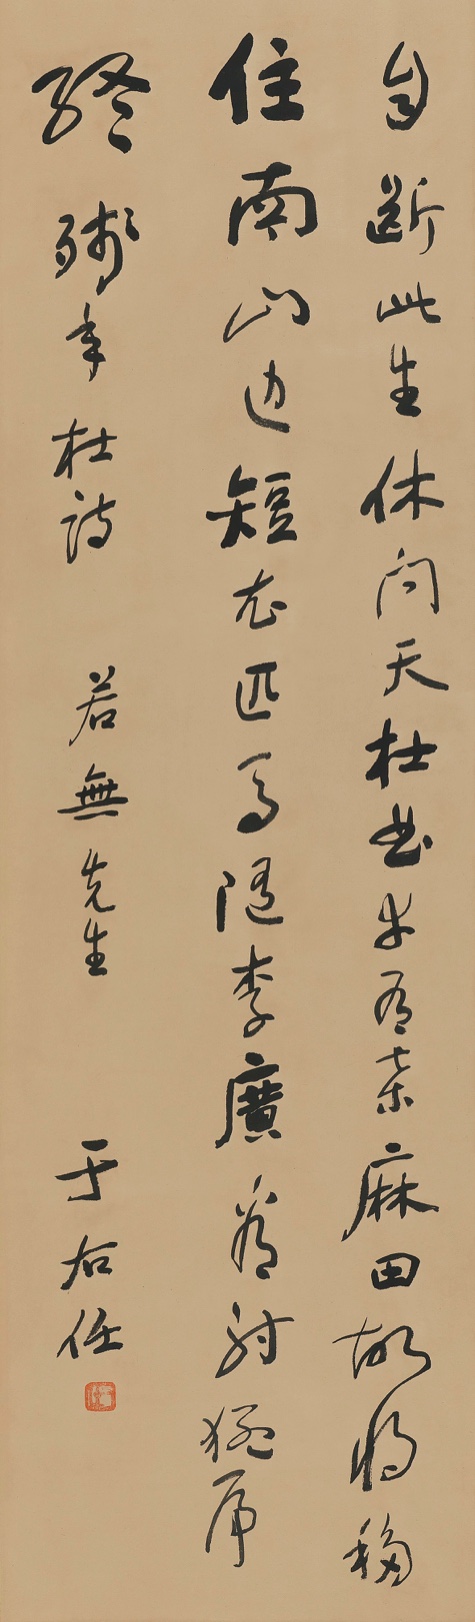 自斷此生休問天杜曲幸有桑麻田故將移
住南山边短衣匹馬隨李廣看射猛虎
終殘年杜詩 若無先生 于右任